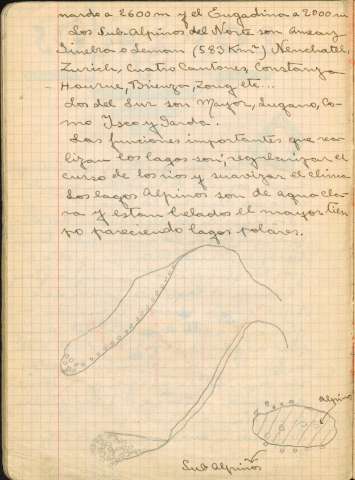 nardo a 2600 m y el Eugadina a 2000 m
Los Sub. Alpinos del Norte son
Ginebra o Leman (583 Km²) Neuchatel,
Zurich, Cuatro Cantones, Constanza
Brienza, Zoug etc...
Los del Sur son Mayor, Lugano, Co-
mo Iseo y Garda.
Las funciones importantes que rea-
lizan los lagos son, regularizar el
curso de los rios y suavizar el clima
Los lagos Alpinos son de agua cla-
ra y estan helados el mayor tiem
po pareciendo lagos polares.
alpino
Sub Alpinos